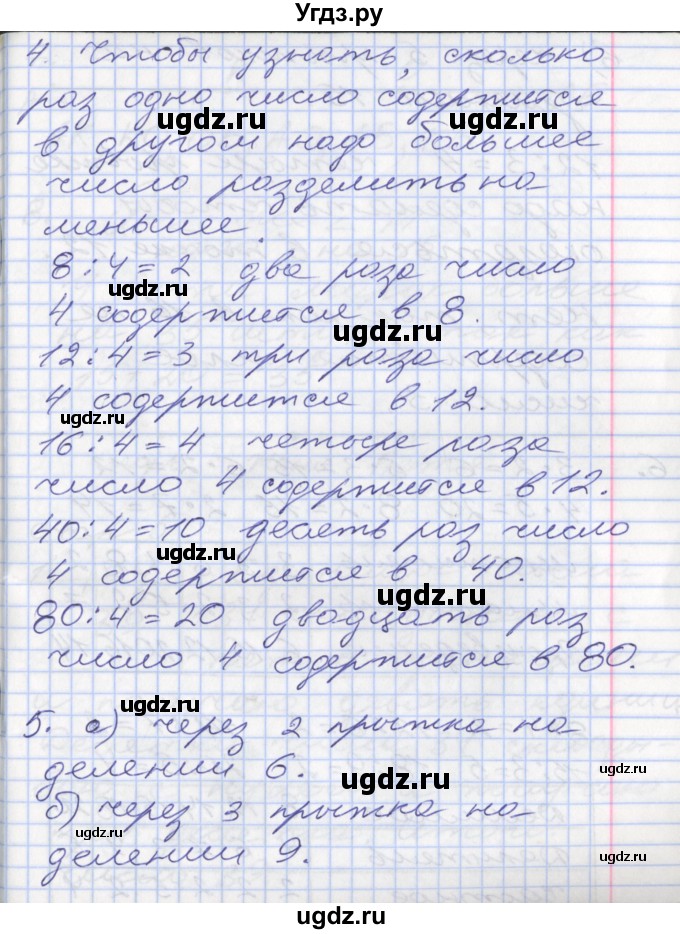 Угдз.ру
4. Чтобы узнать, сколько
раз одно число содержится
ugdz.ru ugdz.ru
в другом надо большее
число разделить на
меньшее.
8:4=2 два раза число
ugdz.ru
4 содержится в 8.
ugdz.ru
12:4=3 три раза число
4 содержится в 12.
ugdz.ru
16:4=4 четыре раза
ugdz.ru
число 4 содержится в 12.
40:4=10 десять раз число
ugdz.ru
4 содержится в 40.
ugdz.ru
80:4=20 двадцать раз
число 4 содержится в 80.
ugdz.ru
5. а) через 2 прыжка на
делении 6.
ugdz.ru ugdz.ru
б) через 3 прыжка на
ugdz.ru
делении 9.
ugdz.ru
ugdz.ru